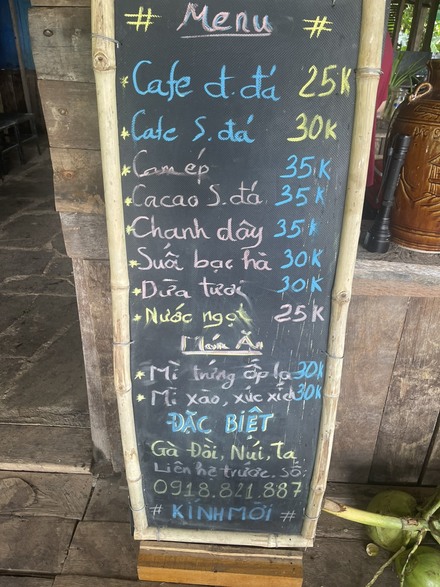 # Menu #
* Cafe đ. đá 25K
* Cafe S. đá 30K
* Cam ép 35K
* Cacao S. đá 35K
* Chanh dây 35K
* Suối bạc hà 30K
* Dừa tươi 30K
* Nước ngọt 25K
Món Ăn
* Mì trứng ốp la 30K
* Mì xào, xúc xích 30K
ĐẶC BIỆT
Gà Đồi, Núi, Ta
Liên hệ trước. Số:
0918.821.887
# KÍNH MỜI #